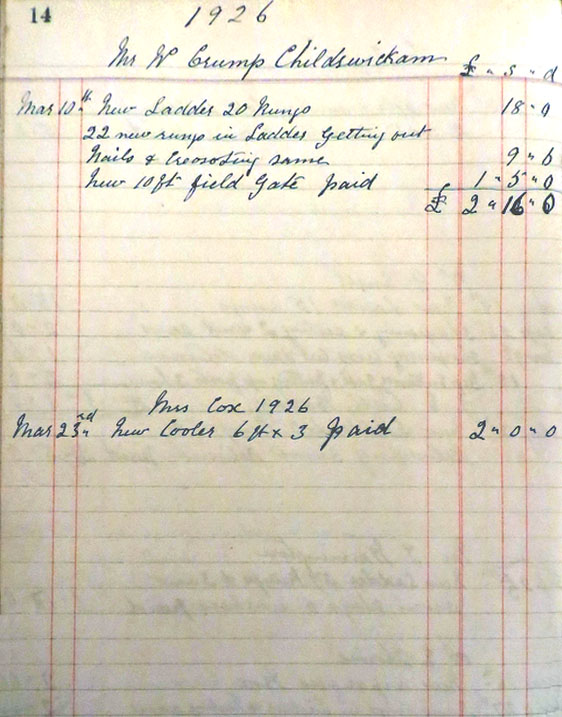 14
1926
Mr W Crump Childswickam
£ " s " d
Mar 10th " New Ladder 20 Rungs 18 " 0
22 new rungs in Ladder Getting out
Nails & Creosoting same 9 " 6
New 10ft field Gate paid 1 " 5 " 0
£ 2 " 16 " 0
Mrs Cox 1926
Mar 23rd " New Cooler 6ft x 3 paid 2 " 0 " 0